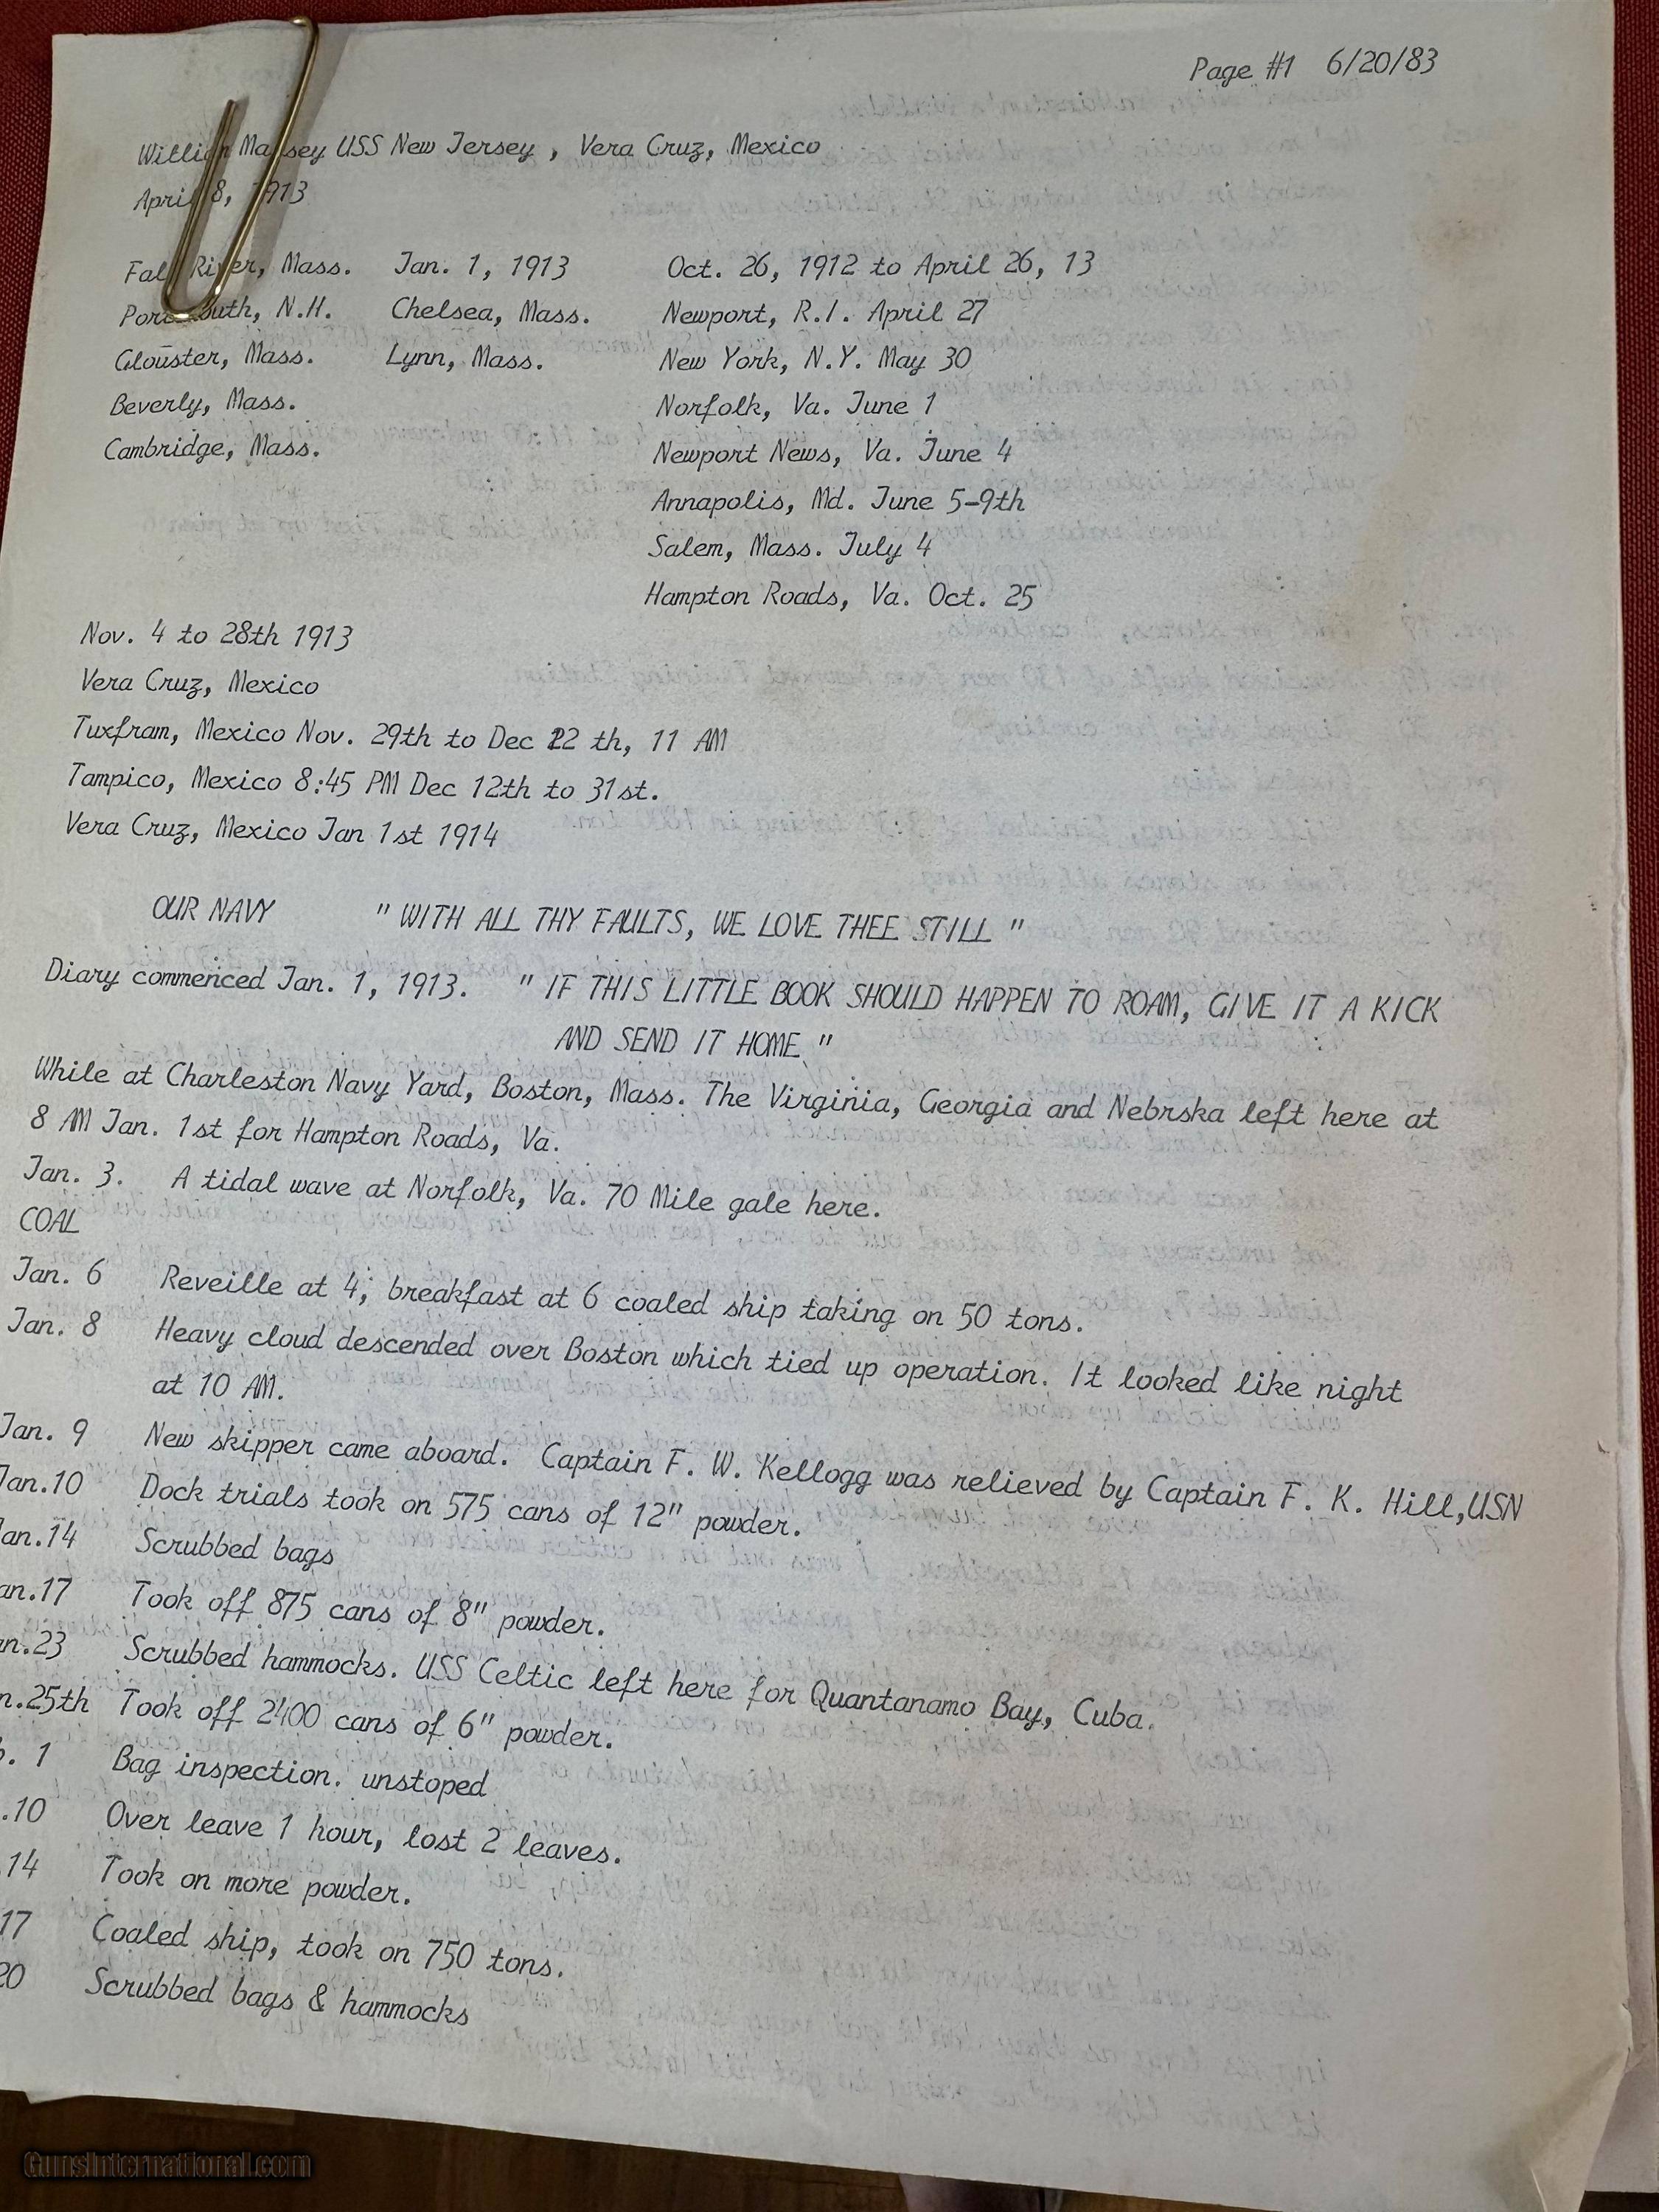 Page #1 6/20/83
William Massey USS New Jersey , Vera Cruz, Mexico
April 8, 1913
Fall River, Mass. Jan. 1, 1913 Oct. 26, 1912 to April 26, 13
Portsmouth, N.H. Chelsea, Mass. Newport, R.I. April 27
Glouster, Mass. Lynn, Mass. New York, N.Y. May 30
Beverly, Mass. Norfolk, Va. June 1
Cambridge, Mass. Newport News, Va. June 4
Annapolis, Md. June 5-9th
Salem, Mass. July 4
Hampton Roads, Va. Oct. 25
Nov. 4 to 28th 1913
Vera Cruz, Mexico
Tuxfram, Mexico Nov. 29th to Dec 12 th, 11 AM
Tampico, Mexico 8:45 PM Dec 12th to 31st.
Vera Cruz, Mexico Jan 1st 1914
OUR NAVY " WITH ALL THY FAULTS, WE LOVE THEE STILL "
Diary commenced Jan. 1, 1913. " IF THIS LITTLE BOOK SHOULD HAPPEN TO ROAM, GIVE IT A KICK
AND SEND IT HOME "
While at Charleston Navy Yard, Boston, Mass. The Virginia, Georgia and Nebrska left here at
8 AM Jan. 1st for Hampton Roads, Va.
Jan. 3. A tidal wave at Norfolk, Va. 70 Mile gale here.
COAL
Jan. 6 Reveille at 4; breakfast at 6 coaled ship taking on 50 tons.
Jan. 8 Heavy cloud descended over Boston which tied up operation. It looked like night
at 10 AM.
Jan. 9 New skipper came aboard. Captain F. W. Kellogg was relieved by Captain F. K. Hill,USN
Jan.10 Dock trials took on 575 cans of 12" powder.
an.14 Scrubbed bags
an.17 Took off 875 cans of 8" powder.
n.23 Scrubbed hammocks. USS Celtic left here for Quantanamo Bay, Cuba.
n.25th Took off 2400 cans of 6" powder.
. 1 Bag inspection. unstoped
.10 Over leave 1 hour, lost 2 leaves.
14 Took on more powder.
17 Coaled ship, took on 750 tons.
20 Scrubbed bags & hammocks
GunsInternational.com